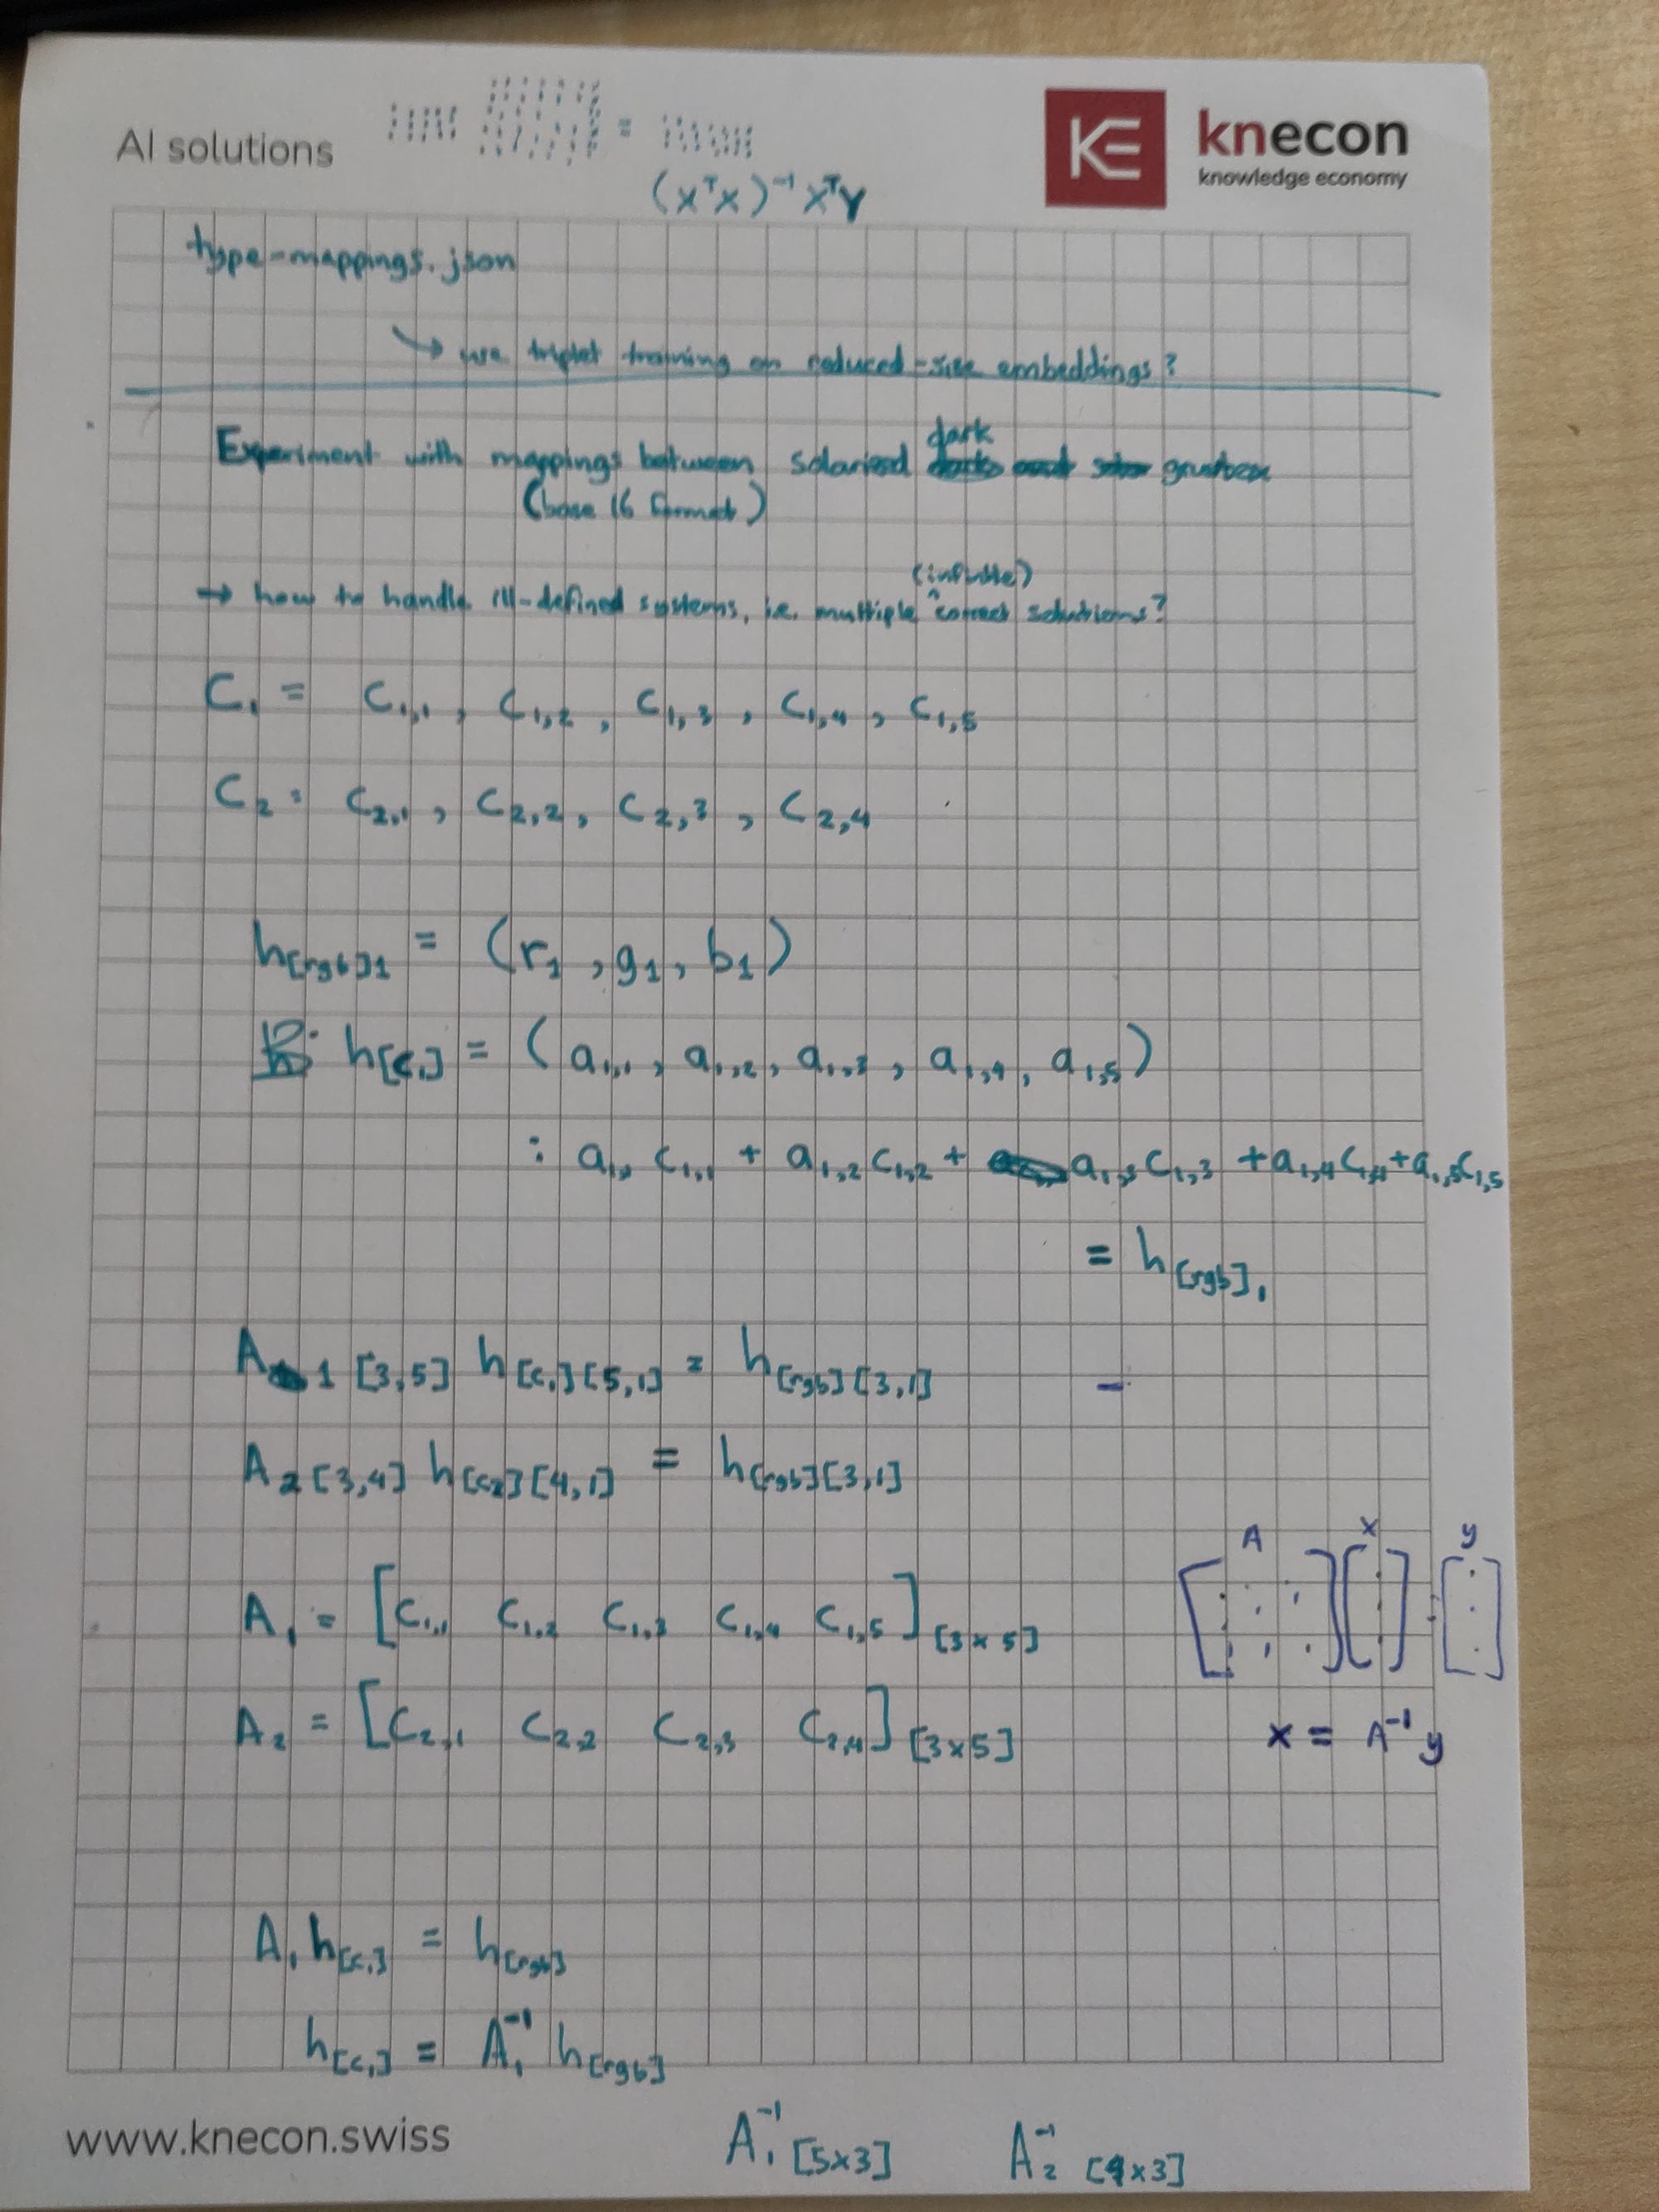 AI solutions
KE knecon
knowledge economy
(XᵀX)⁻¹ XᵀY
type-mappings.json
↳ use triplet training on reduced-size embeddings?
Experiment with mappings between solarized dark gruvbox
(base 16 format)
→ how to handle ill-defined systems, i.e. multiple (infinite) correct solutions?
C₁ = c₁,₁ , c₁,₂ , c₁,₃ , c₁,₄ , c₁,₅
C₂ = c₂,₁ , c₂,₂ , c₂,₃ , c₂,₄
h[rgb]1 = (r₁ , g₁ , b₁)
h[c₁] = (a₁,₁ , a₁,₂ , a₁,₃ , a₁,₄ , a₁,₅)
: a₁,₁ c₁,₁ + a₁,₂ c₁,₂ + a₁,₃ c₁,₃ + a₁,₄ c₁,₄ + a₁,₅ c₁,₅
= h[rgb]₁
A 1 [3,5] h[c₁][5,1] = h[rgb][3,1]
A 2 [3,4] h[c₂][4,1] = h[rgb][3,1]
A x y
A₁ = [c₁,₁ c₁,₂ c₁,₃ c₁,₄ c₁,₅] [3×5]
A₂ = [c₂,₁ c₂,₂ c₂,₃ c₂,₄] [3×5]
x = A⁻¹ y
A₁ h[c₁] = h[rgb]
h[c₁] = A₁⁻¹ h[rgb]
www.knecon.swiss
A₁⁻¹ [5×3] A₂⁻¹ [4×3]